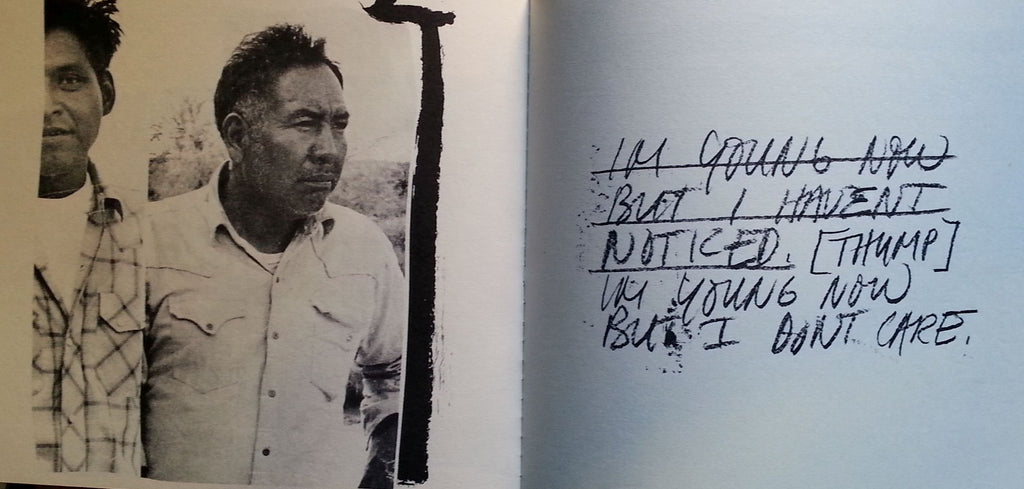 IM YOUNG NOW
BUT I HAVENT
NOTICED. [THUMP]
IM YOUNG NOW
BUT I DONT CARE.